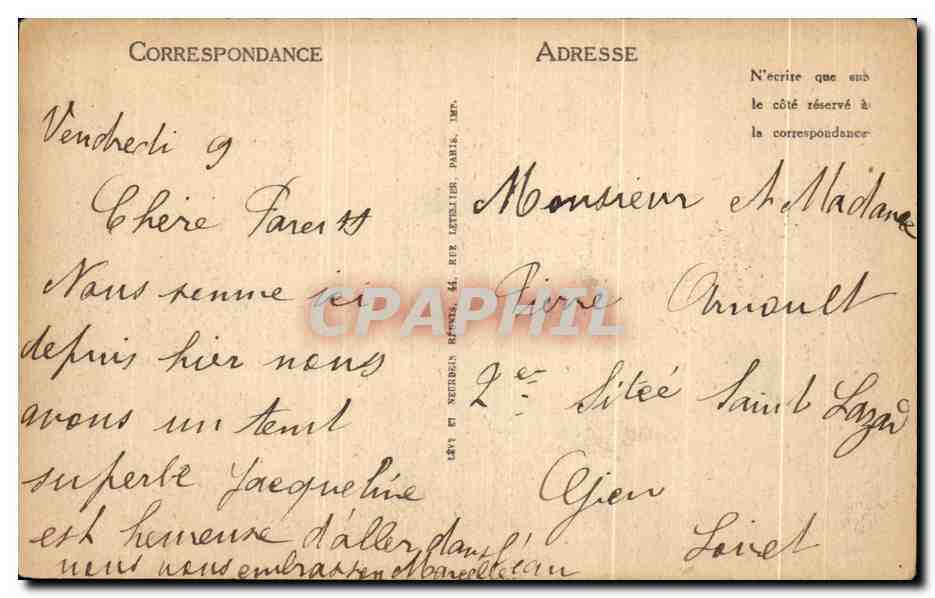 CORRESPONDANCE
Vendredi 9
Chère Parents
Nous somme ici
depuis hier nous
avons un temt
superbe Jacqueline
est heureuse d'aller dans l'eau
nous vous embrassen Marcelle
ADRESSE
N'écrire que sur
le côté réservé à
la correspondance
Monsieur et Madame
Pierre Arnoult
2er Sitéé Saint Lazar
Gien
Loiret
LÉVY ET NEURDEIN RÉUNIS, 44, RUE LETELLIER, PARIS, IMP.
CPAPHIL